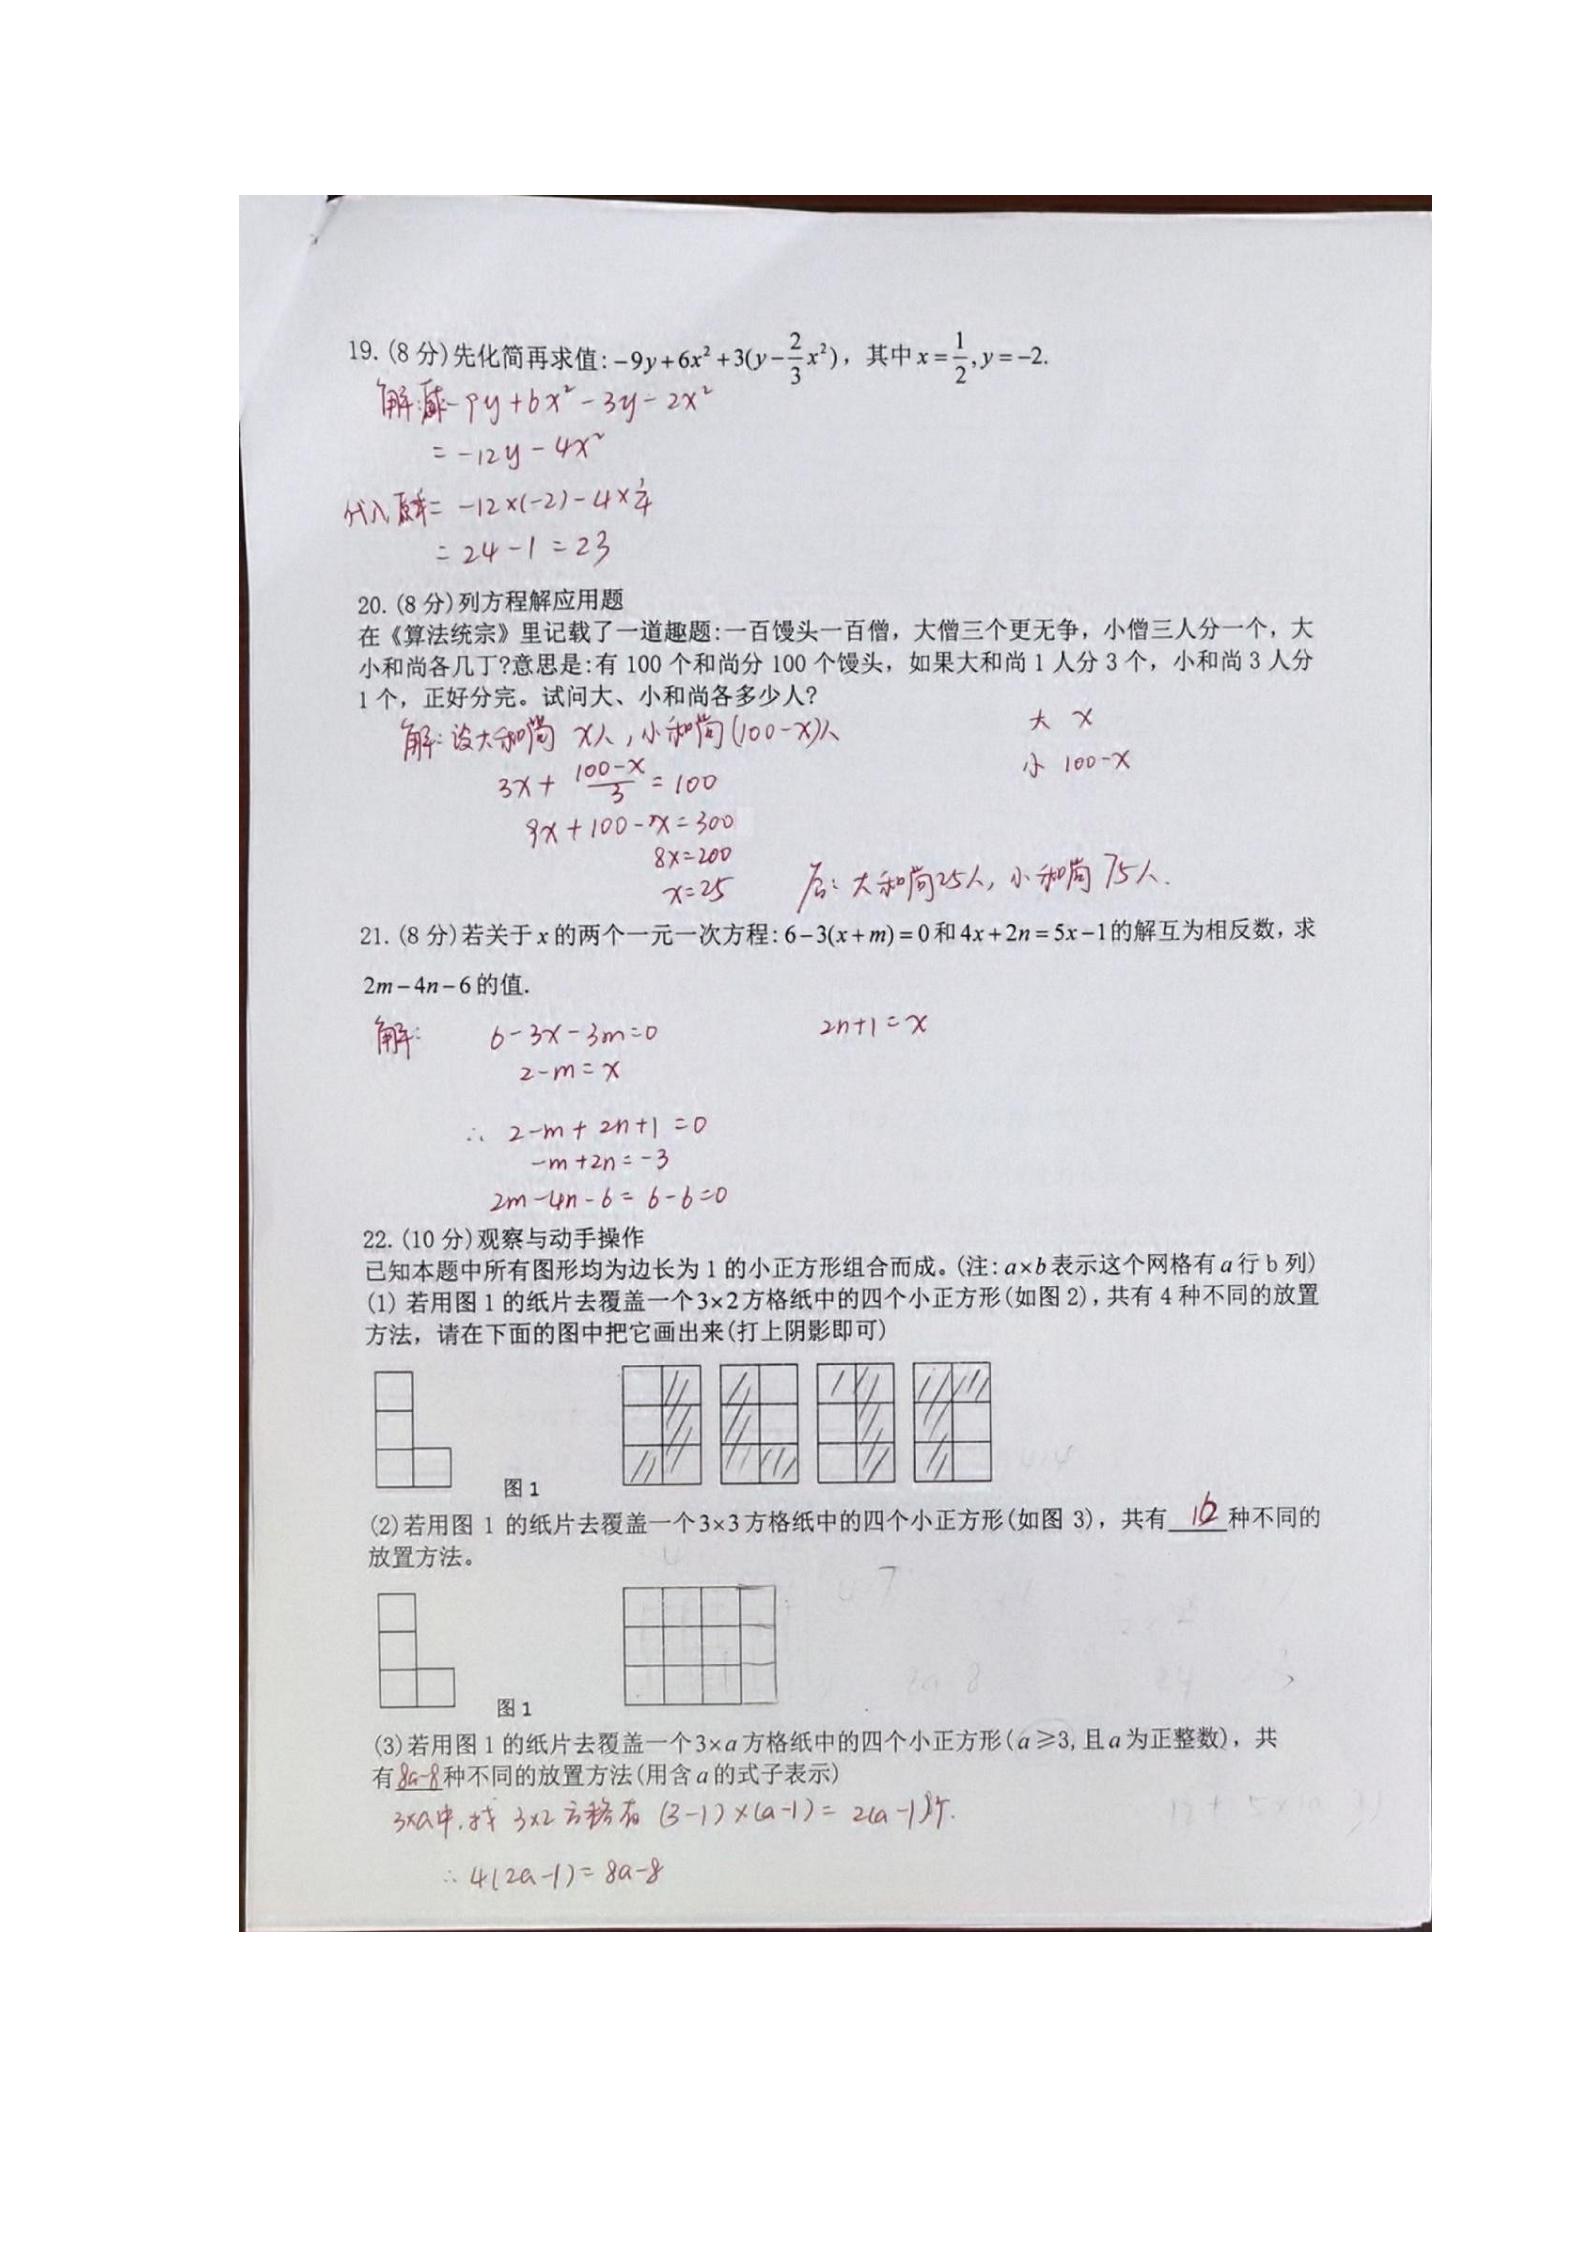 19.(8分)先化简再求值:-9y+6x²+3(y-2/3x²)，其中x=1/2,y=-2.
解:-9y+6x²-3y-2x²
=-12y-4x²
代入=-12×(-2)-4×1/4
=24-1=23
20.(8分)列方程解应用题
在《算法统宗》里记载了一道趣题:一百馒头一百僧，大僧三个更无争，小僧三人分一个，大
小和尚各几丁?意思是:有100个和尚分100个馒头，如果大和尚1人分3个，小和尚3人分
1个，正好分完。试问大、小和尚各多少人?
解:设大和尚 x人,小和尚(100-x)人
大 x
小 100-x
3x+(100-x)/3=100
9x+100-x=300
8x=200
x=25
答:大和尚25人,小和尚75人.
21.(8分)若关于x的两个一元一次方程:6-3(x+m)=0和4x+2n=5x-1的解互为相反数，求
2m-4n-6的值.
解: 6-3x-3m=0 2n+1=x
2-m=x
∴ 2-m+2n+1=0
-m+2n=-3
2m-4n-6=6-6=0
22.(10分)观察与动手操作
已知本题中所有图形均为边长为1的小正方形组合而成。(注:a×b表示这个网格有a行b列)
(1) 若用图1的纸片去覆盖一个3×2方格纸中的四个小正方形(如图2),共有4种不同的放置
方法，请在下面的图中把它画出来(打上阴影即可)
图1
(2)若用图1 的纸片去覆盖一个3×3方格纸中的四个小正方形(如图3)，共有16种不同的
放置方法。
图1
(3)若用图1的纸片去覆盖一个3×a方格纸中的四个小正方形(a≥3,且a为正整数)，共
有8a-8种不同的放置方法(用含a的式子表示)
3×a中,找 3×2方格有 (3-1)×(a-1)=2(a-1)个.
∴4(2a-1)=8a-8